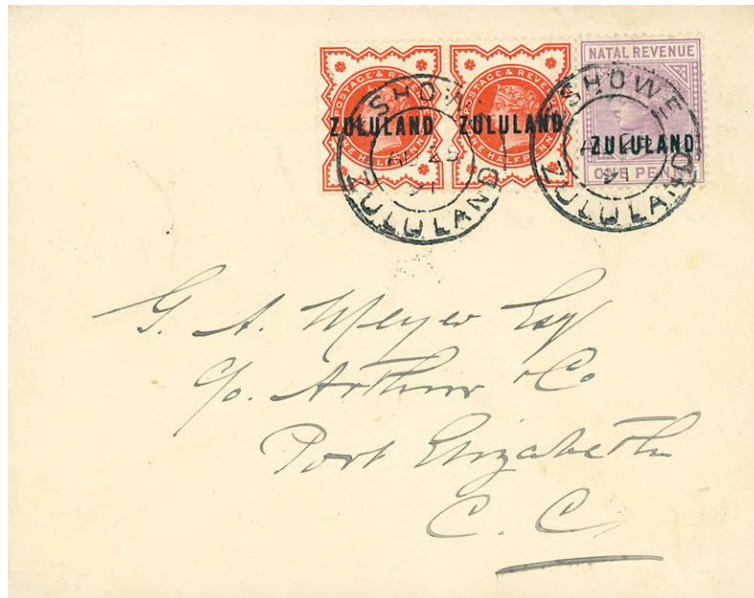 POSTAGE & REVENUE
ZULULAND
ONE HALFPENNY
POSTAGE & REVENUE
ZULULAND
ONE HALFPENNY
NATAL REVENUE
ZULULAND
ONE PENNY
ESHOWE
ZULULAND
ESHOWE
ZULULAND
G. A. Meyer Esq
c/o. Arthur & Co
Port Elizabeth
C. C.